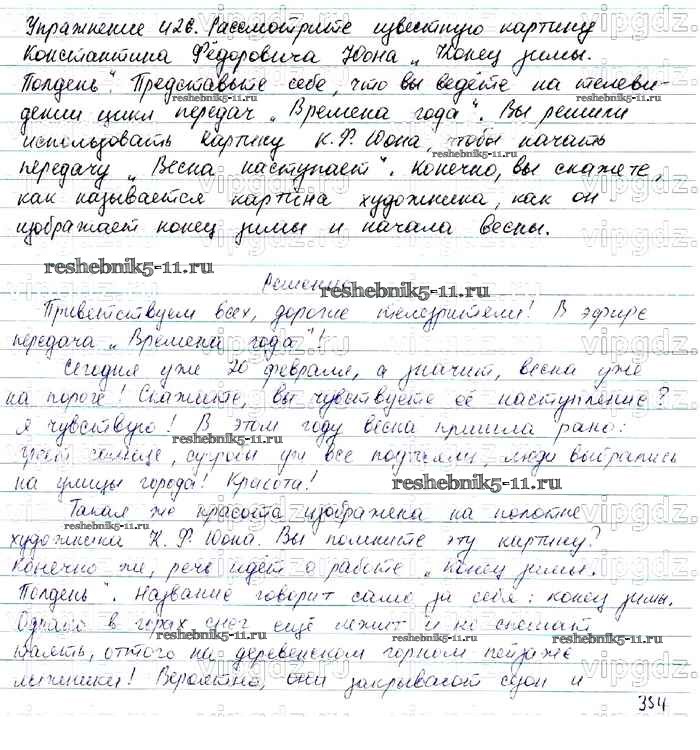 Упражнение 426. Рассмотрите известную картину
Константина Фёдоровича Юона „Конец зимы.
Полдень“. Представьте себе, что вы ведёте на телеви-
дении цикл передач „Времена года“. Вы решили
использовать картину К. Ф. Юона, чтобы начать
передачу „Весна наступает“. Конечно, вы скажете,
как называется картина художника, как он
изображает конец зимы и начала весны.
reshebnik5-11.ru
Решение
Приветствуем всех, дорогие телезрители! В эфире
передача „Времена года“!
Сегодня уже 20 февраля, а значит, весна уже
на пороге! Скажите, вы чувствуете её наступление?
Я чувствую! В этом году весна пришла рано:
солнце, сугробы уже все люди выбрались
на улицы города! Красота!
Такая же красота изображена на полотне
художника К. Ф. Юона. Вы помните эту картину?
Конечно же, речь идёт о работе „Конец зимы.
Полдень“. Название говорит само за себя: конец зимы.
Однако в горах снег ещё лежит и не спешит
таять, оттого на деревенском горном пейзаже
лыжники! Вероятно, они закрывают сезон и
354